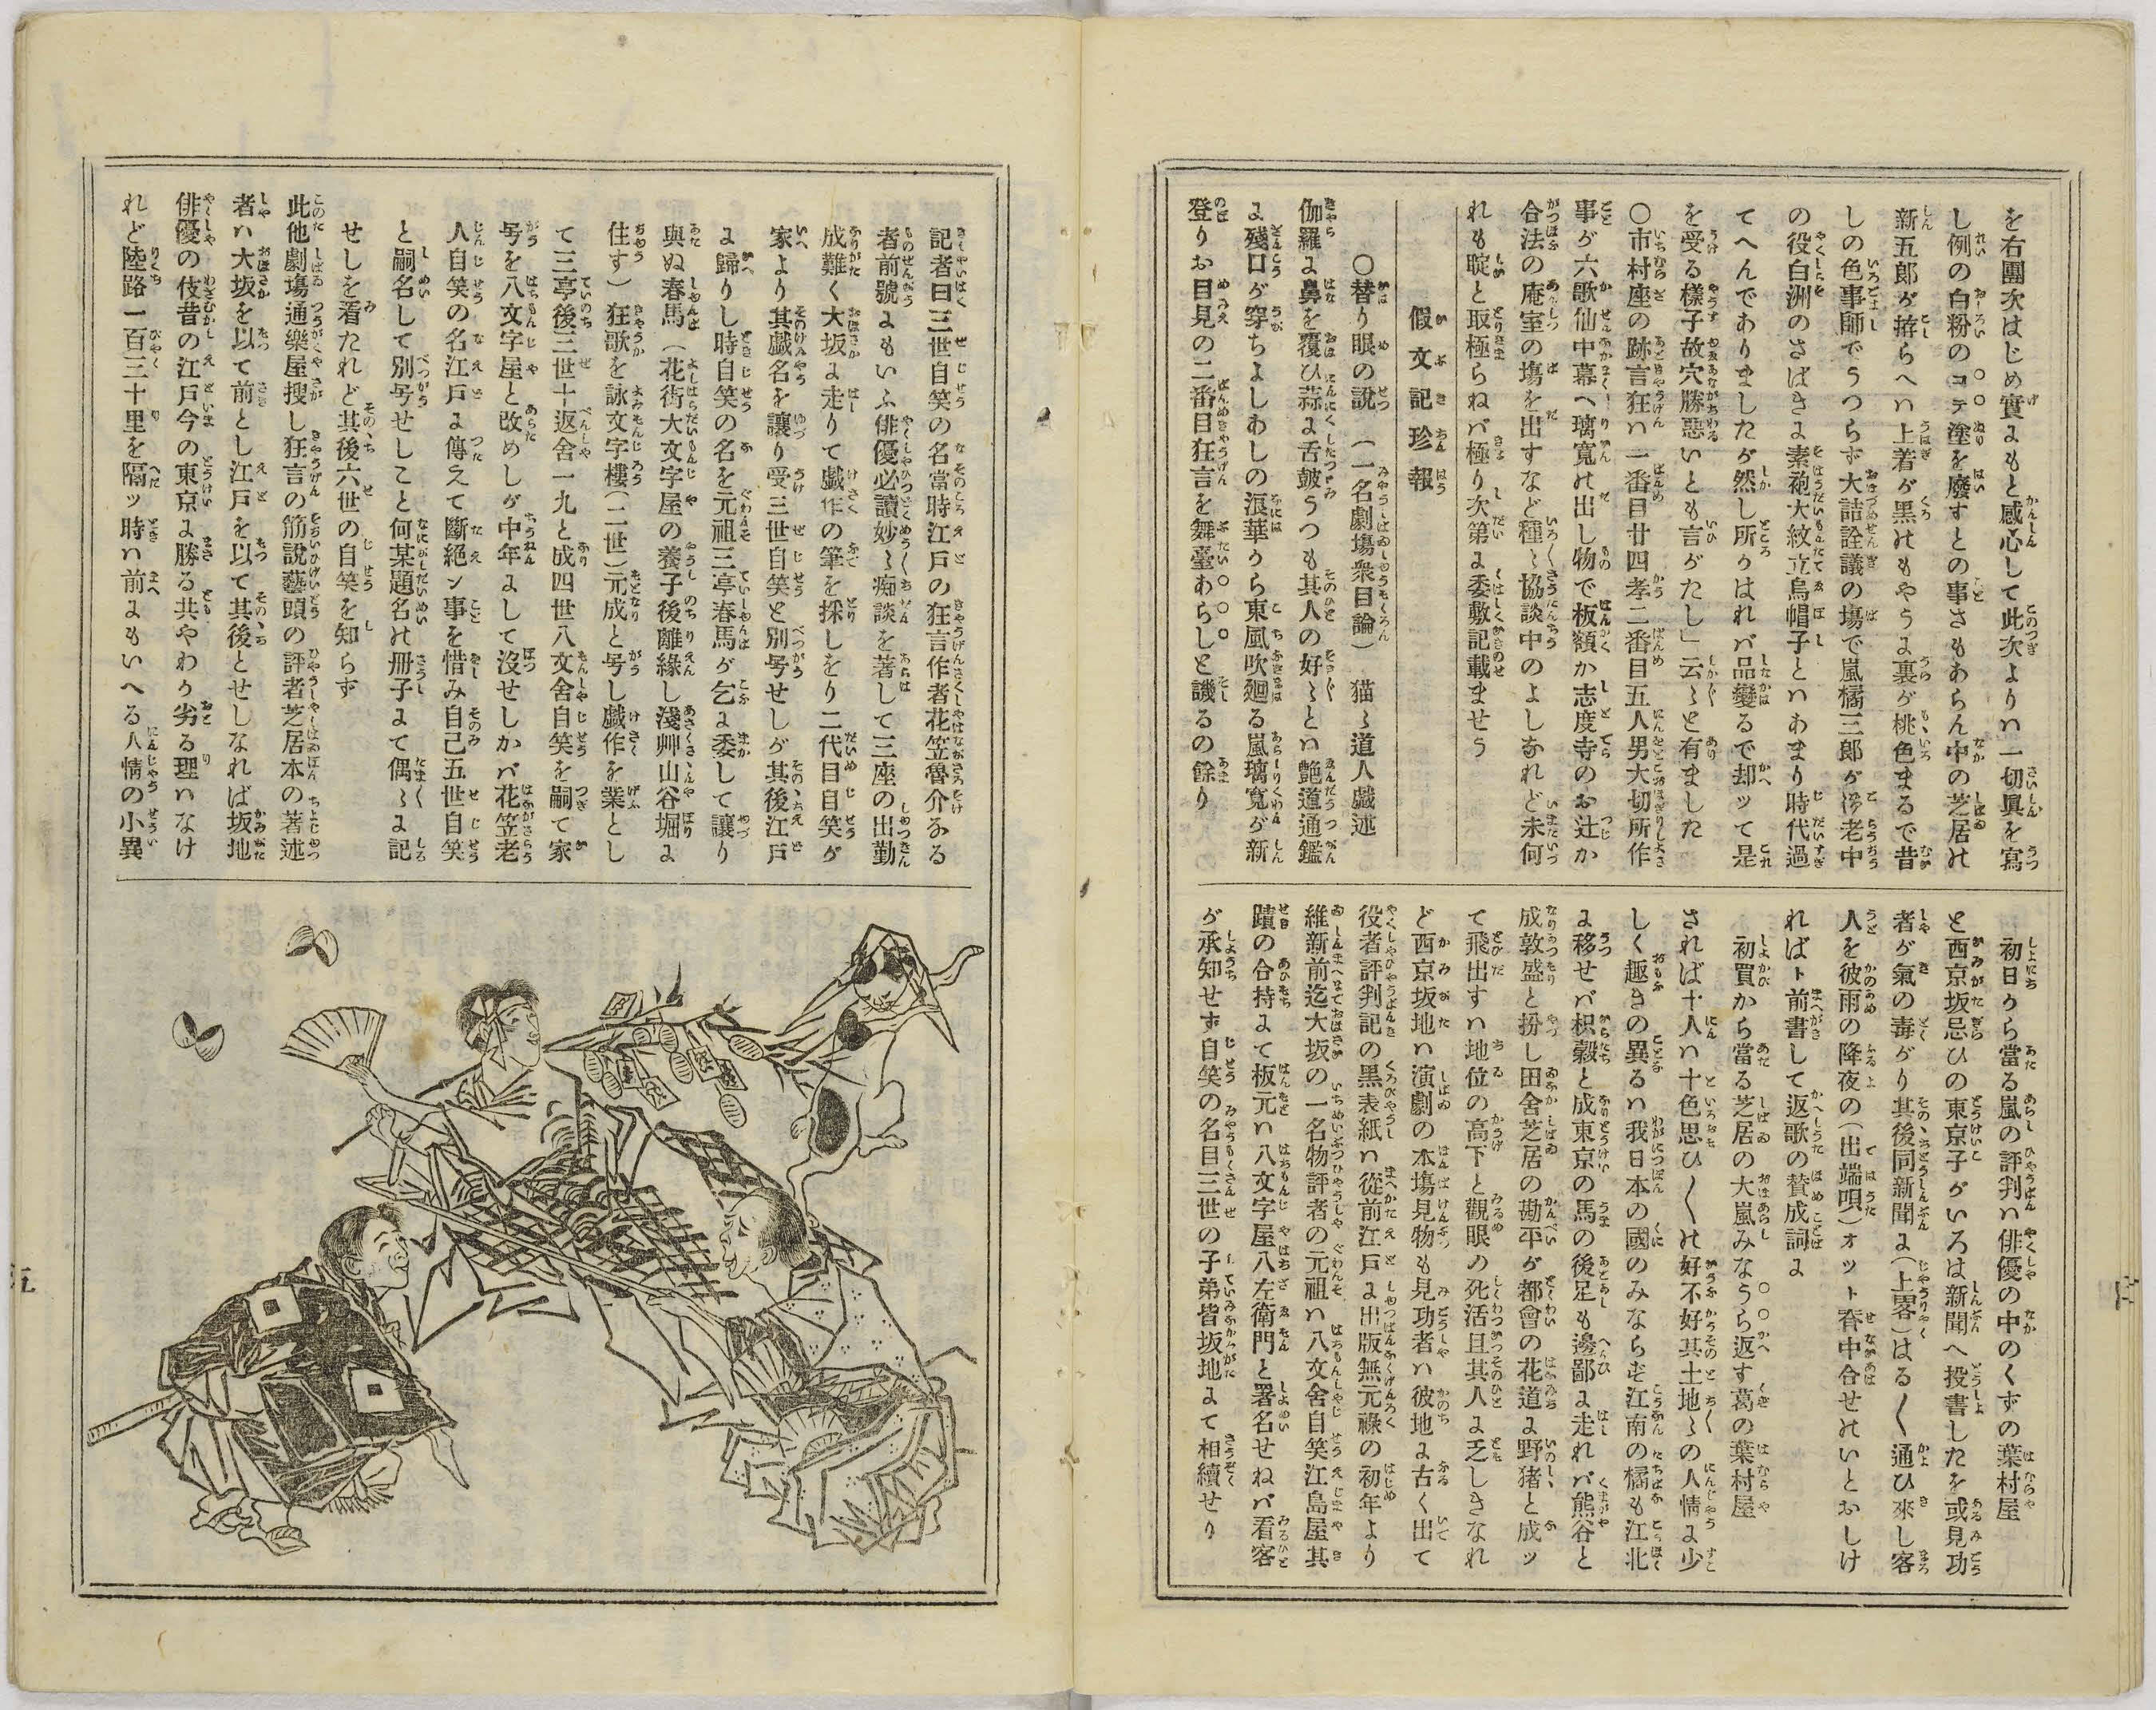 を右團次はじめ實よもと感心して此次よりハ一切眞を寫
し例の白粉のコテ塗を廢すとの事さもあらん中の芝居の
新五郎が拵らへハ上着が黒のもやうよ裏が桃色まるで昔
しの色事師でうつらず大詰詮議の塲で嵐橘三郎が老中
の役白洲のさばきよ素袍大紋立烏帽子とハあまり時代過
てへんでありましたが然し所かはれバ品變るで却ッて是
を受る樣子故穴勝惡いとも言がたし」云〻と有ました
〇市村座の跡言狂ハ一番目廿四孝二番目五人男大切所作
事が六歌仙中幕へ璃寛の出し物で板額か志度寺のお辻か
合法の庵室の塲を出すなど種〻協談中のよしなれど未何
れも聢と取極らねバ極り次第よ委敷記載ませう
假文記珍報
〇替り眼の説　（一名劇塲衆目論）　猫〻道人戯述
伽羅よ鼻を覆ひ蒜よ舌皷うつも其人の好〻とハ艶道通鑑
よ殘口が穿ちよしあしの浪華から東風吹廻る嵐璃寛が新
登りお目見の二番目狂言を舞臺あらしと譏るの餘り
初日から當る嵐の評判ハ俳優の中のくずの葉村屋
と西京坂忌ひの東京子がいろは新聞へ投書したを或見功
者が氣の毒がり其後同新聞よ（上畧）はる〱通ひ來し客
人を彼雨の降夜の（出端唄）オット脊中合せのいとおしけ
ればト前書して返歌の賛成詞よ
初買から當る芝居の大嵐みなうら返す葛の葉村屋
されば十人ハ十色思ひ〱の好不好其土地〻の人情よ少
しく趣きの異るハ我日本の國のみならず江南の橘も江北
よ移せバ枳殼と成東京の馬の後足も邊鄙よ走れバ熊谷と
成敦盛と扮し田舍芝居の勘平が都會の花道よ野猪と成ッ
て飛出すハ地位の高下と觀眼の死活且其人よ乏しきなれ
ど西京坂地ハ演劇の本塲見物も見功者ハ彼地よ古く出て
役者評判記の黒表紙ハ從前江戸よ出版無元祿の初年より
維新前迄大坂の一名物評者の元祖ハ八文舍自笑江島屋其
蹟の合持よて板元ハ八文字屋八左衛門と署名せねバ看客
が承知せず自笑の名目三世の子弟皆坂地よて相續せり
記者曰三世自笑の名當時江戸の狂言作者花笠魯介なる
者前號よもいふ俳優必讀妙〻痴談を著して三座の出勤
成難く大坂よ走りて戯作の筆を採しをり二代目自笑が
家より其戯名を讓り受三世自笑と別号せしが其後江戸
よ歸りし時自笑の名を元祖三亭春馬が乞よ委して讓り
與ぬ春馬（花街大文字屋の養子後離緣し淺艸山谷堀よ
住す）狂歌を詠文字樓（二世）元成と号し戯作を業とし
て三亭後三世十返舍一九と成四世八文舍自笑を嗣て家
号を八文字屋と改めしが中年よして沒せしかバ花笠老
人自笑の名江戸よ傳えて斷絶ン事を惜み自己五世自笑
と嗣名して別号せしこと何某題名の册子よて偶〻よ記
せしを着たれど其後六世の自笑を知らず
此他劇塲通樂屋搜し狂言の筋說藝頭の評者芝居本の著述
者ハ大坂を以て前とし江戸を以て其後とせしなれば坂地
俳優の伎昔の江戸今の東京よ勝る共やわか劣る理ハなけ
れど陸路一百三十里を隔ッ時ハ前よもいへる人情の小異
五